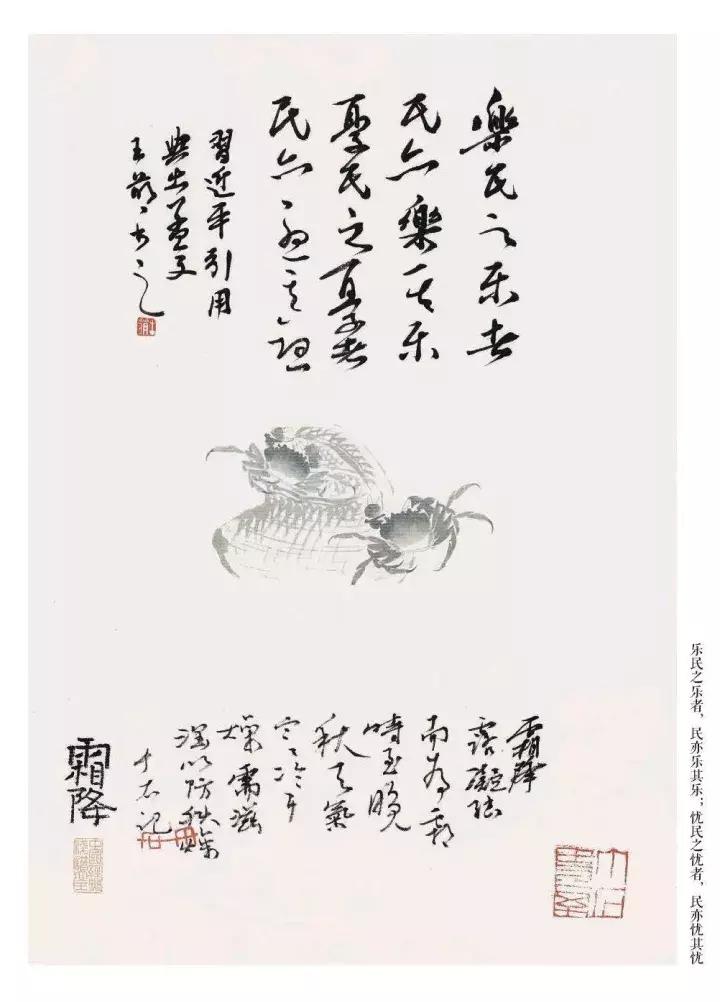 樂民之乐者
民亦樂其乐
憂民之憂者
民亦忧其忧
習近平引用
典出孟子
书之
霜降
露凝结
而为霜
時至晚
秋天氣
寒冷干
燥需滋
润以防秋燥
记
霜降
乐民之乐者，民亦乐其乐；忧民之忧者，民亦忧其忧